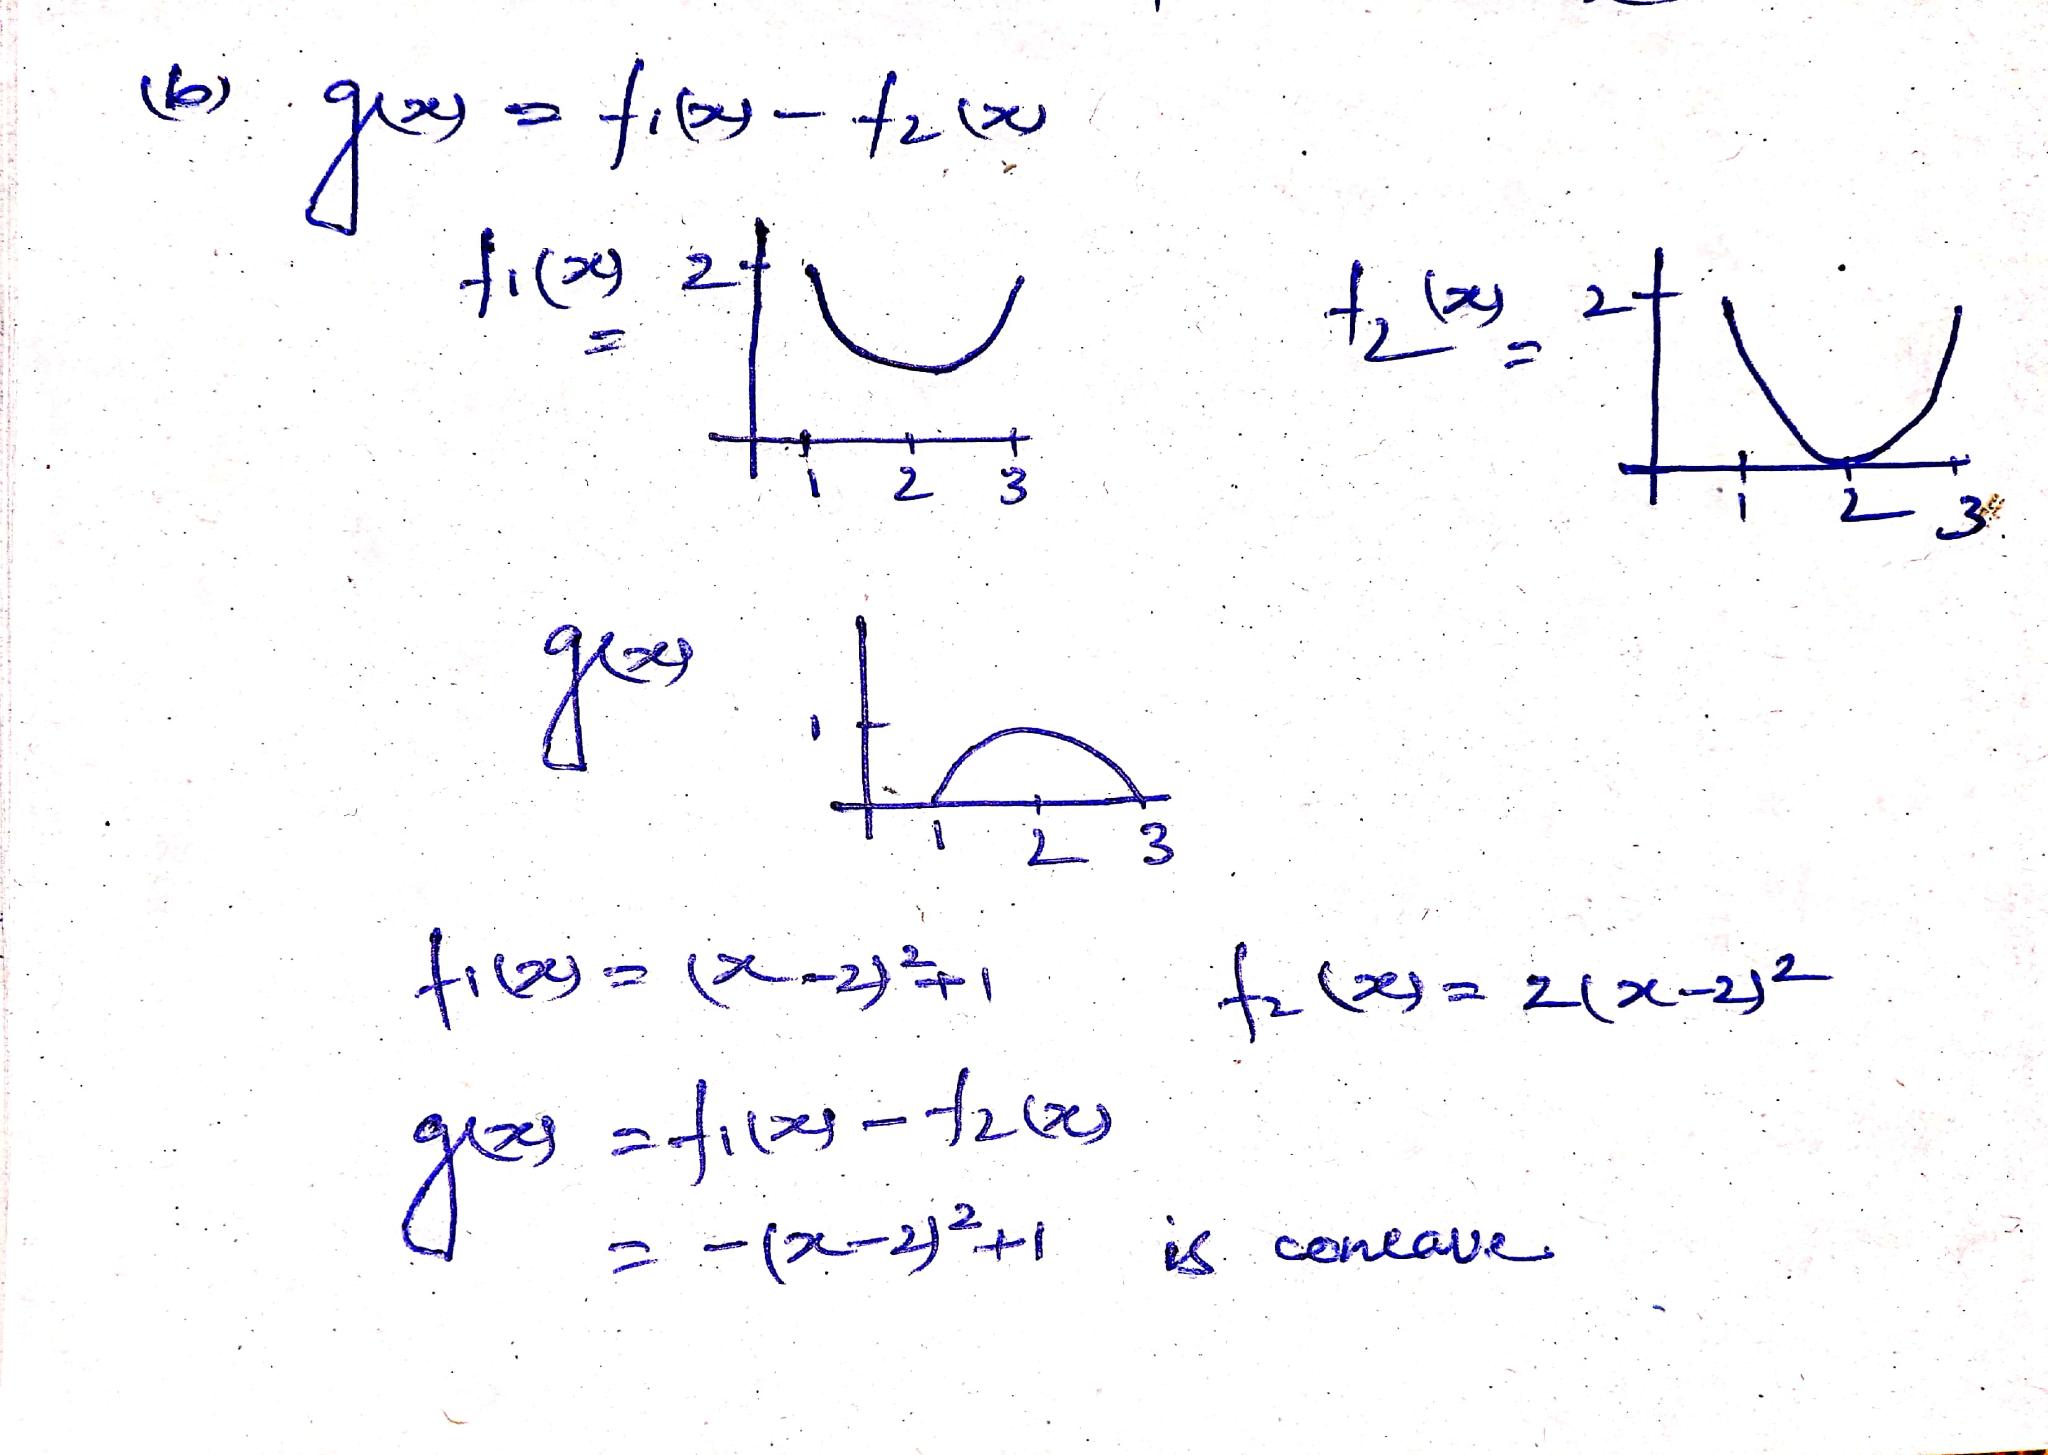 (b) g(x) = f1(x) - f2(x)
f1(x) = 2
1 2 3
f2(x) = 2
1 2 3
g(x) 1
1 2 3
f1(x) = (x-2)²+1 f2(x) = 2(x-2)²
g(x) = f1(x) - f2(x)
= -(x-2)²+1 is concave